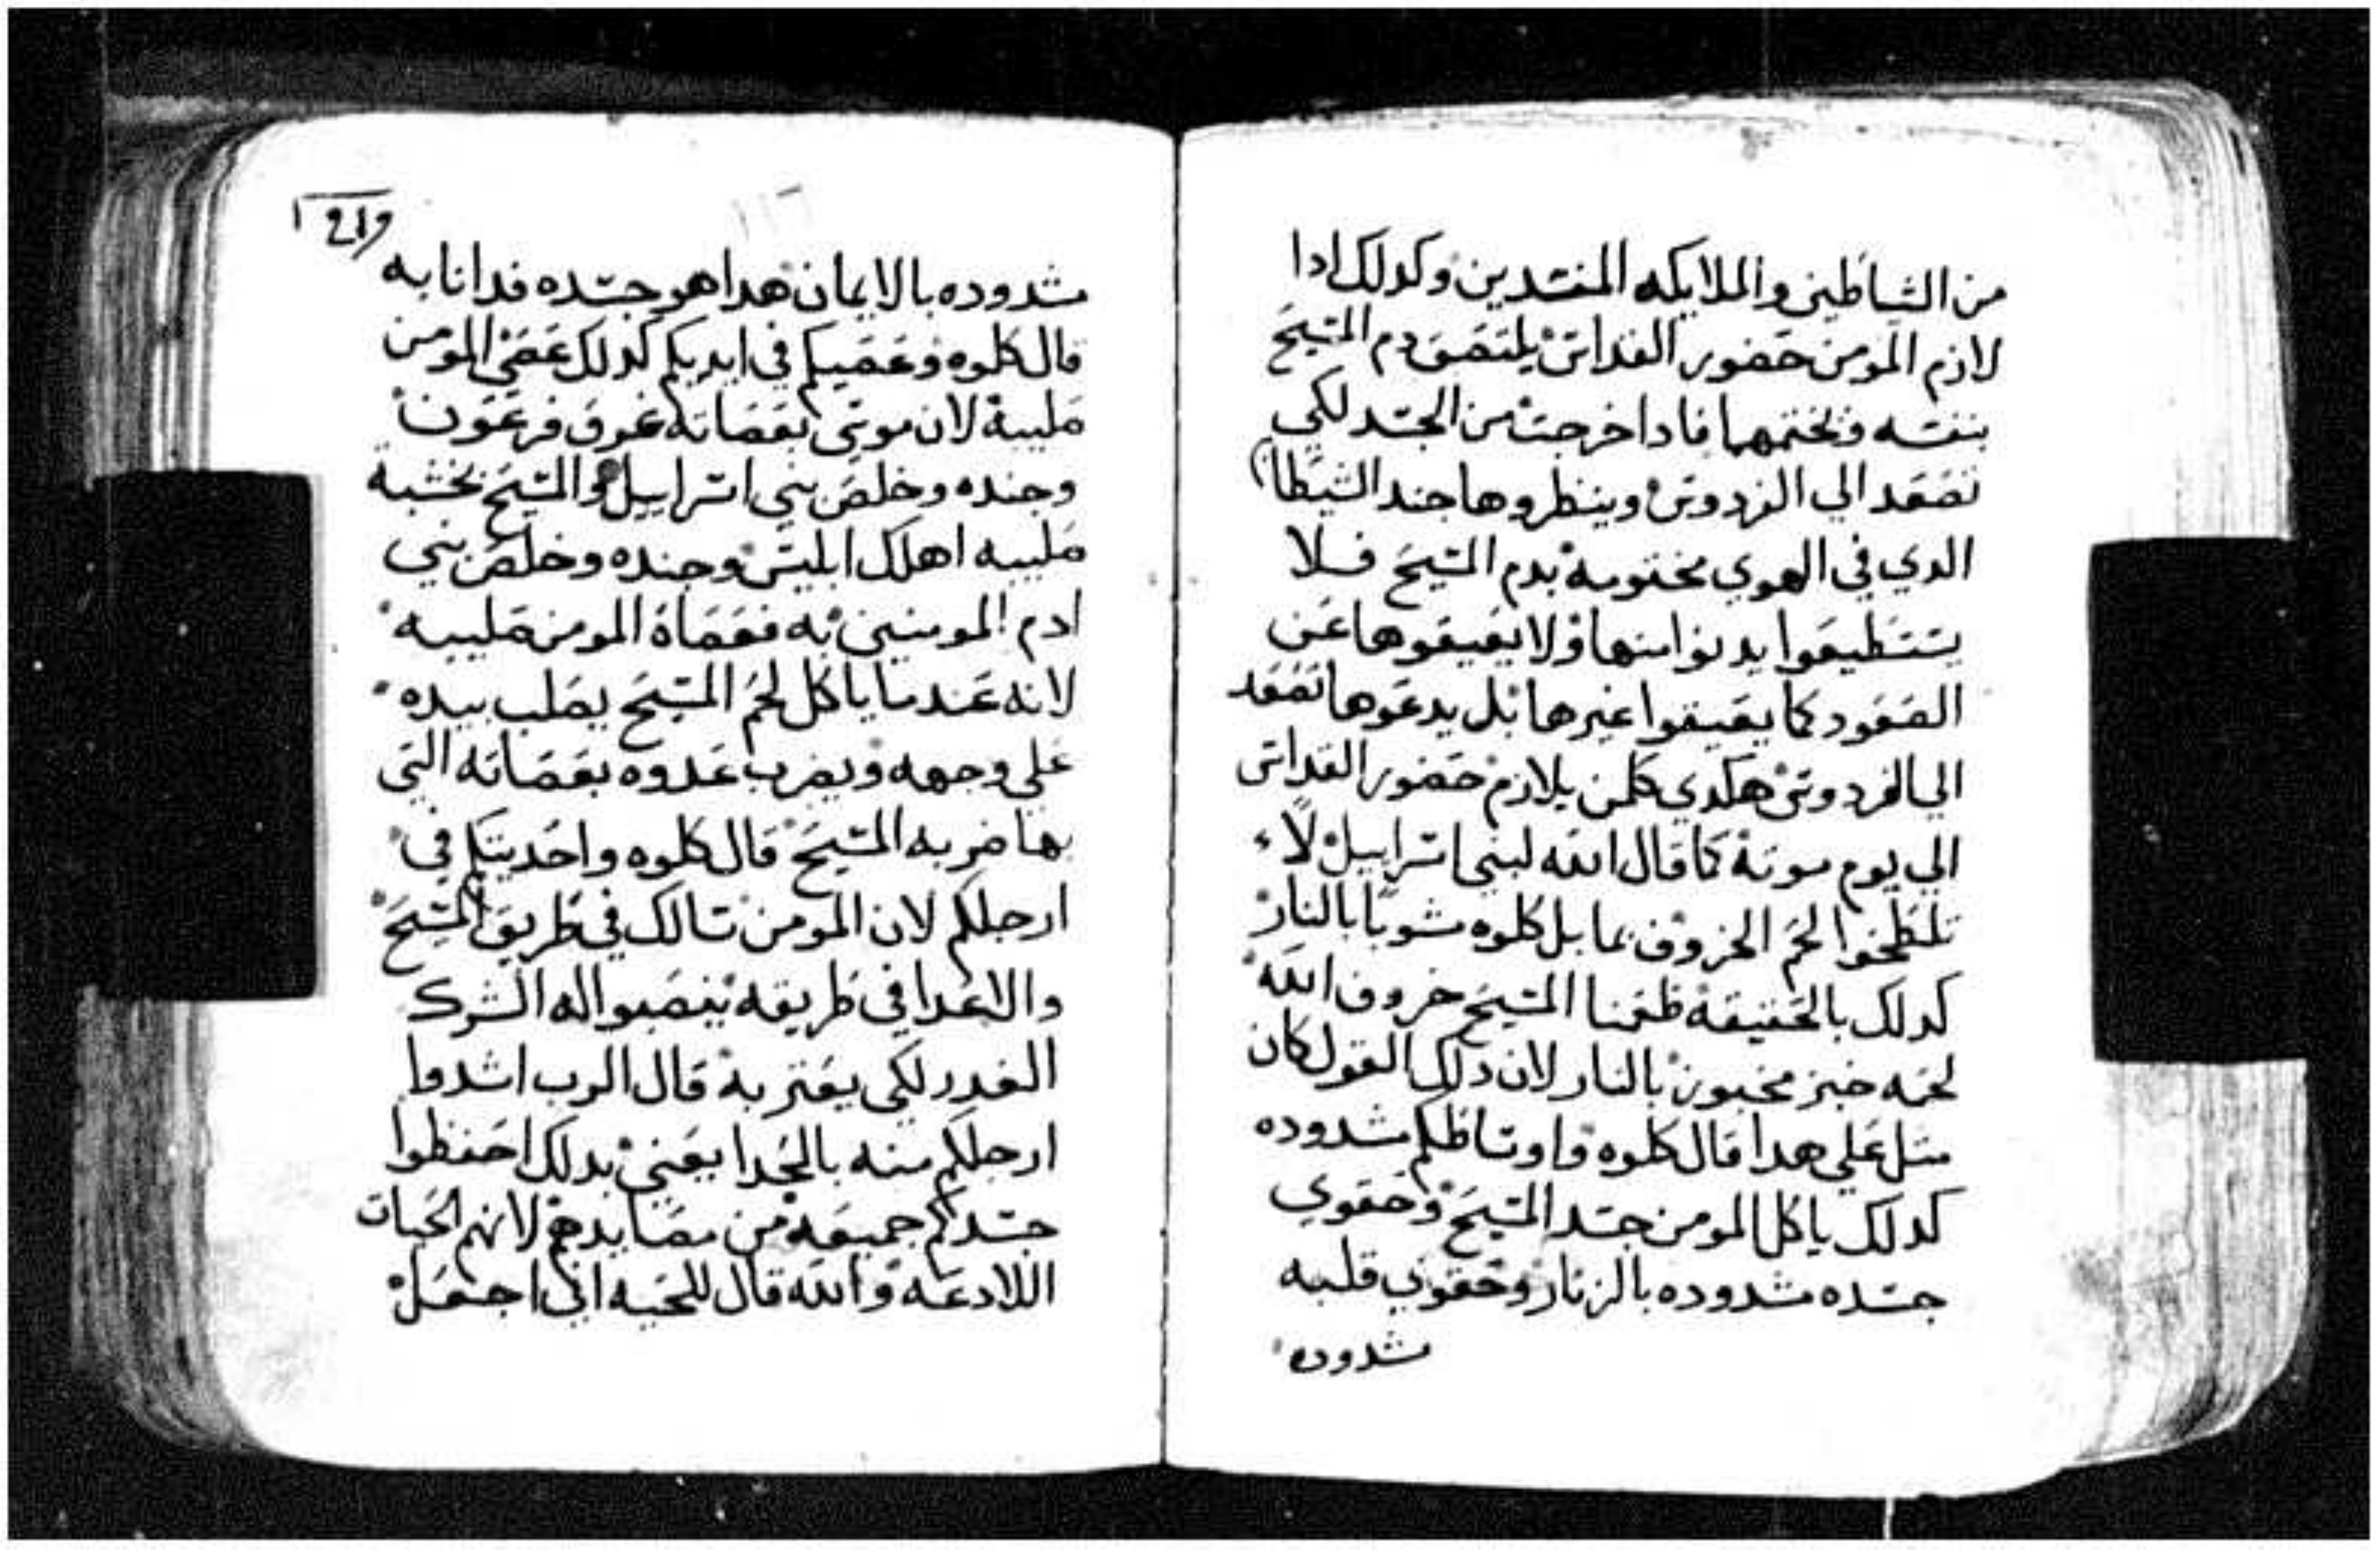 من الشاطين والملايكه المفسدين وكدلك ادا
لازم المومن حضور القداس يلتصق دم المسيح
بنفسه وتختمها فادا خرجت من الجسد لكي
تصعد الي الفردوس وينظروها جند الشيطان
الدي في الهوي مختومه بدم المسيح فلا
يستطيعوا يدنوا منها ولا يعيقوها عن
الصعود كما يعيقوا غيرها بل يدعوها تصعد
الي الفردوس هكدي كلمن يلازم حضور القداس
الي يوم موته كما قال الله لبني اسراييل لا
تلطخوا لحم الخروف بما بل كلوه مشويا بالنار
كدلك بالحقيقه طعمنا المسيح خروف الله
لحمه خبز مخبوز بالنار لان دلك القول كان
مثل علي هدا قال كلوه واوساطكم مشدوده
كدلك ياكل المومن جسد المسيح وحقوي
جسده مشدوده بالزنار وحقوي قلبه
مشدوده
مشدوده بالايمان هدا هو جسده فدانا به
قال كلوه وعصيكم في ايديكم كدلك عصي المومن
صليبه لان موسي بعصاته غرق فرعون
وجنده وخلص بني اسراييل والمسيح بخشبة
صليبه اهلك ابليس وجنده وخلص بني
ادم المومنين به فعصاة المومن صليبه
لانه عندما ياكل لحم المسيح يصلب بيده
علي وجهه ويضرب عدوه بعصاته التي
بها ضربه المسيح قال كلوه واحديتكم في
ارجلكم لان المومن سالك في طريق المسيح
والاعدا في طريقه ينصبوا له الشرك
الغدر لكي يعتر به قال الرب اشدوا
ارجلكم منه بالحدا يعني بدلك احفظوا
جسدكم جميعه من مصايدهم لانهم الحيات
اللادعه والله قال للحيه اني اجعل